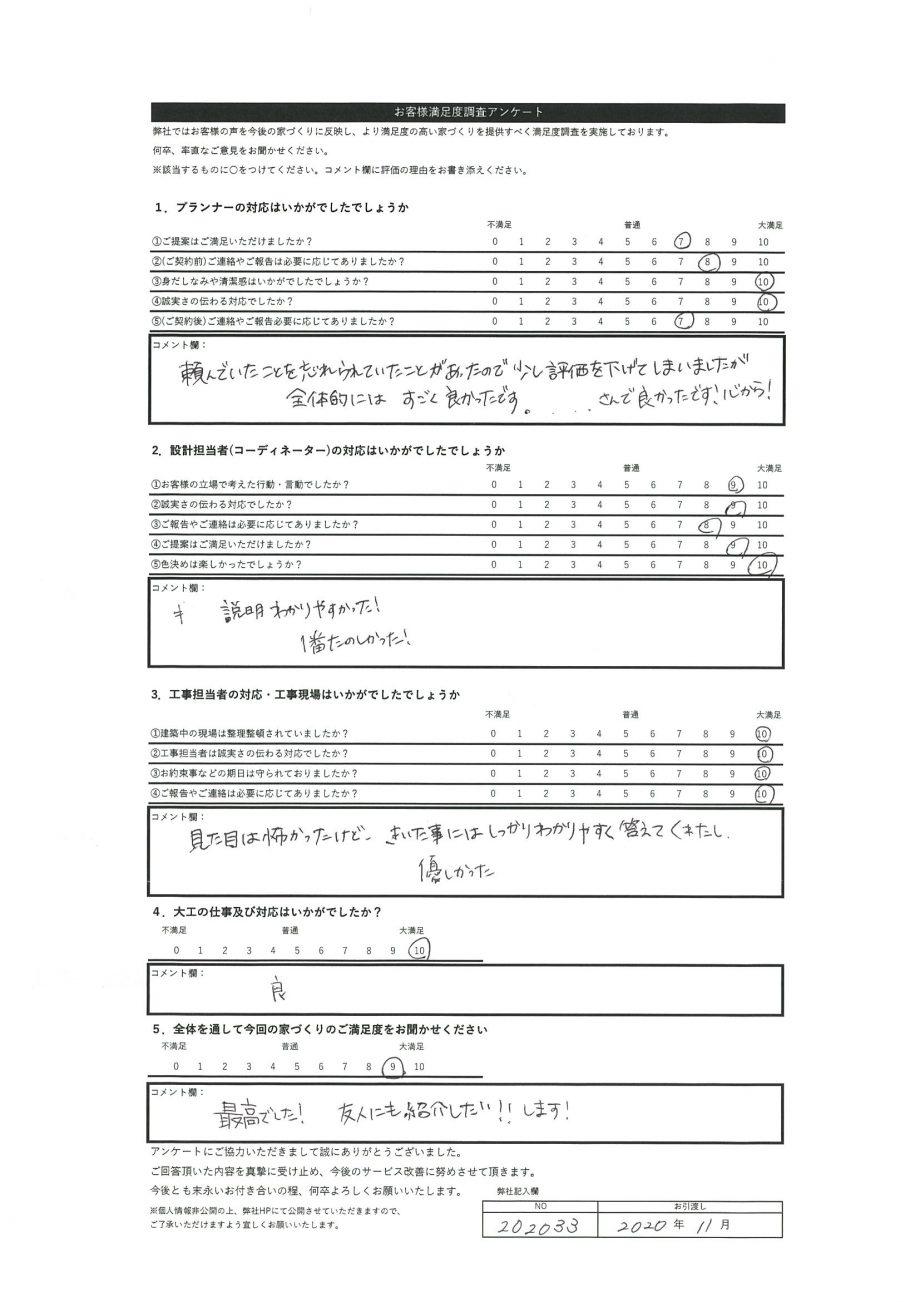 お客様満足度調査アンケート
弊社ではお客様の声を今後の家づくりに反映し、より満足度の高い家づくりを提供すべく満足度調査を実施しております。
何卒、率直なご意見をお聞かせください。
※該当するものに〇をつけてください。コメント欄に評価の理由をお書き添えください。
1．プランナーの対応はいかがでしたでしょうか
不満足 普通 大満足
①ご提案はご満足いただけましたか？ 0 1 2 3 4 5 6 7 8 9 10
②(ご契約前)ご連絡やご報告は必要に応じてありましたか？ 0 1 2 3 4 5 6 7 8 9 10
③身だしなみや清潔感はいかがでしたでしょうか？ 0 1 2 3 4 5 6 7 8 9 10
④誠実さの伝わる対応でしたか？ 0 1 2 3 4 5 6 7 8 9 10
⑤(ご契約後)ご連絡やご報告必要に応じてありましたか？ 0 1 2 3 4 5 6 7 8 9 10
コメント欄：
頼んでいたことを忘れられていたことがあったので少し評価を下げてしまいましたが
全体的には すごく良かったです。....さんで良かったです！心から！
2．設計担当者(コーディネーター)の対応はいかがでしたでしょうか
不満足 普通 大満足
①お客様の立場で考えた行動・言動でしたか？ 0 1 2 3 4 5 6 7 8 9 10
②誠実さの伝わる対応でしたか？ 0 1 2 3 4 5 6 7 8 9 10
③ご報告やご連絡は必要に応じてありましたか？ 0 1 2 3 4 5 6 7 8 9 10
④ご提案はご満足いただけましたか？ 0 1 2 3 4 5 6 7 8 9 10
⑤色決めは楽しかったでしょうか？ 0 1 2 3 4 5 6 7 8 9 10
コメント欄：
説明わかりやすかった！
1番たのしかった！
3．工事担当者の対応・工事現場はいかがでしたでしょうか
不満足 普通 大満足
①建築中の現場は整理整頓されていましたか？ 0 1 2 3 4 5 6 7 8 9 10
②工事担当者は誠実さの伝わる対応でしたか？ 0 1 2 3 4 5 6 7 8 9 10
③お約束事などの期日は守られておりましたか？ 0 1 2 3 4 5 6 7 8 9 10
④ご報告やご連絡は必要に応じてありましたか？ 0 1 2 3 4 5 6 7 8 9 10
コメント欄：
見た目は怖かったけど、きいた事にはしっかりわかりやすく答えてくれたし、
優しかった
4．大工の仕事及び対応はいかがでしたか？
不満足 普通 大満足
0 1 2 3 4 5 6 7 8 9 10
コメント欄：
良
5．全体を通して今回の家づくりのご満足度をお聞かせください
不満足 普通 大満足
0 1 2 3 4 5 6 7 8 9 10
コメント欄：
最高でした！ 友人にも紹介したい！！します！
アンケートにご協力いただきまして誠にありがとうございました。
ご回答頂いた内容を真摯に受け止め、今後のサービス改善に努めさせて頂きます。
今後とも末永いお付き合いの程、何卒よろしくお願いいたします。 弊社記入欄
※個人情報非公開の上、弊社HPにて公開させていただきますので、
ご了承いただけますよう宜しくお願いいたします。
NO お引渡し
202033 2020年 11月